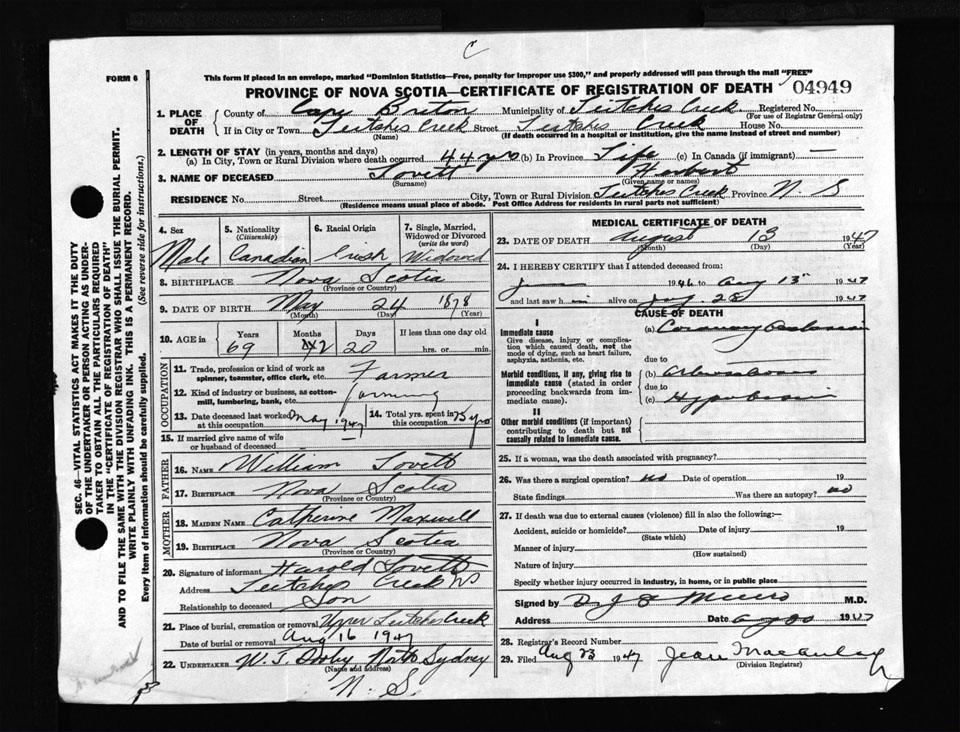 FORM 6
This form if placed in an envelope, marked "Dominion Statistics—Free, penalty for improper use $300," and properly addressed will pass through the mail "FREE"
PROVINCE OF NOVA SCOTIA—CERTIFICATE OF REGISTRATION OF DEATH
04949
1. PLACE OF DEATH
County of Cape Breton Municipality of Leitches Creek Registered No.
(For use of Registrar General only)
If in City or Town Leitches Creek Street Leitches Creek House No.
(Name) (If death occurred in a hospital or institution, give the name instead of street and number)
2. LENGTH OF STAY (in years, months and days)
(a) In City, Town or Rural Division where death occurred 44 yrs (b) In Province Life (c) In Canada (if immigrant) —
3. NAME OF DECEASED Lovett Herbert
(Surname) (Given name or names)
RESIDENCE No. Street City, Town or Rural Division Leitches Creek Province N. S
(Residence means usual place of abode. Post Office Address for residents in rural parts not sufficient)
4. Sex Male
5. Nationality (Citizenship) Canadian
6. Racial Origin Irish
7. Single, Married, Widowed or Divorced (write the word) Widowed
8. BIRTHPLACE Nova Scotia
(Province or Country)
9. DATE OF BIRTH May 24 1878
(Month) (Day) (Year)
10. AGE in Years 69 Months 2 Days 20 If less than one day old hrs. or min.
OCCUPATION
11. Trade, profession or kind of work as spinner, teamster, office clerk, etc. Farmer
12. Kind of industry or business, as cotton-mill, lumbering, bank, etc. Farming
13. Date deceased last worked at this occupation May 1947
14. Total yrs. spent in this occupation
15. If married give name of wife or husband of deceased
FATHER
16. NAME William Lovett
17. BIRTHPLACE Nova Scotia
(Province or Country)
MOTHER
18. MAIDEN NAME Catherine Maxwell
19. BIRTHPLACE Nova Scotia
(Province or Country)
20. Signature of informant Harold Lovett
Address Leitches Creek NS
Relationship to deceased Son
21. Place of burial, cremation or removal Upper Leitches Creek
Date of burial or removal Aug 16 1947
22. UNDERTAKER W. J. Dooley North Sydney
(Name and address)
N. S.
MEDICAL CERTIFICATE OF DEATH
23. DATE OF DEATH August 13 1947
(Month) (Day) (Year)
24. I HEREBY CERTIFY that I attended deceased from:
June 1946 to Aug 13 1947
and last saw him alive on 28 1947
CAUSE OF DEATH
I
Immediate cause
Give disease, injury or complication which caused death, not the mode of dying, such as heart failure, asphyxia, asthenia, etc.
(a) Coronary Occlusion
due to
Morbid conditions, if any, giving rise to immediate cause (stated in order proceeding backwards from immediate cause).
(b)
due to
(c) Hypertension
II
Other morbid conditions (if important) contributing to death but not causally related to immediate cause.
25. If a woman, was the death associated with pregnancy?
26. Was there a surgical operation? no Date of operation 19
State findings Was there an autopsy? no
27. If death was due to external causes (violence) fill in also the following:—
Accident, suicide or homicide? Date of injury 19
(State which)
Manner of injury
(How sustained)
Nature of injury
Specify whether injury occurred in industry, in home, or in public place
Signed by Munro M.D.
Address Date Aug 1947
28. Registrar's Record Number
29. Filed Aug 23 1947 Jean Macaulay
(Division Registrar)
SEC. 46—VITAL STATISTICS ACT MAKES IT THE DUTY
OF THE UNDERTAKER OR PERSON ACTING AS UNDER-
TAKER TO OBTAIN ALL THE PARTICULARS REQUIRED
IN THE "CERTIFICATE OF REGISTRATION OF DEATH"
AND TO FILE THE SAME WITH THE DIVISION REGISTRAR WHO SHALL ISSUE THE BURIAL PERMIT.
WRITE PLAINLY WITH UNFADING INK. THIS IS A PERMANENT RECORD.
Every item of information should be carefully supplied. (See reverse side for instructions.)